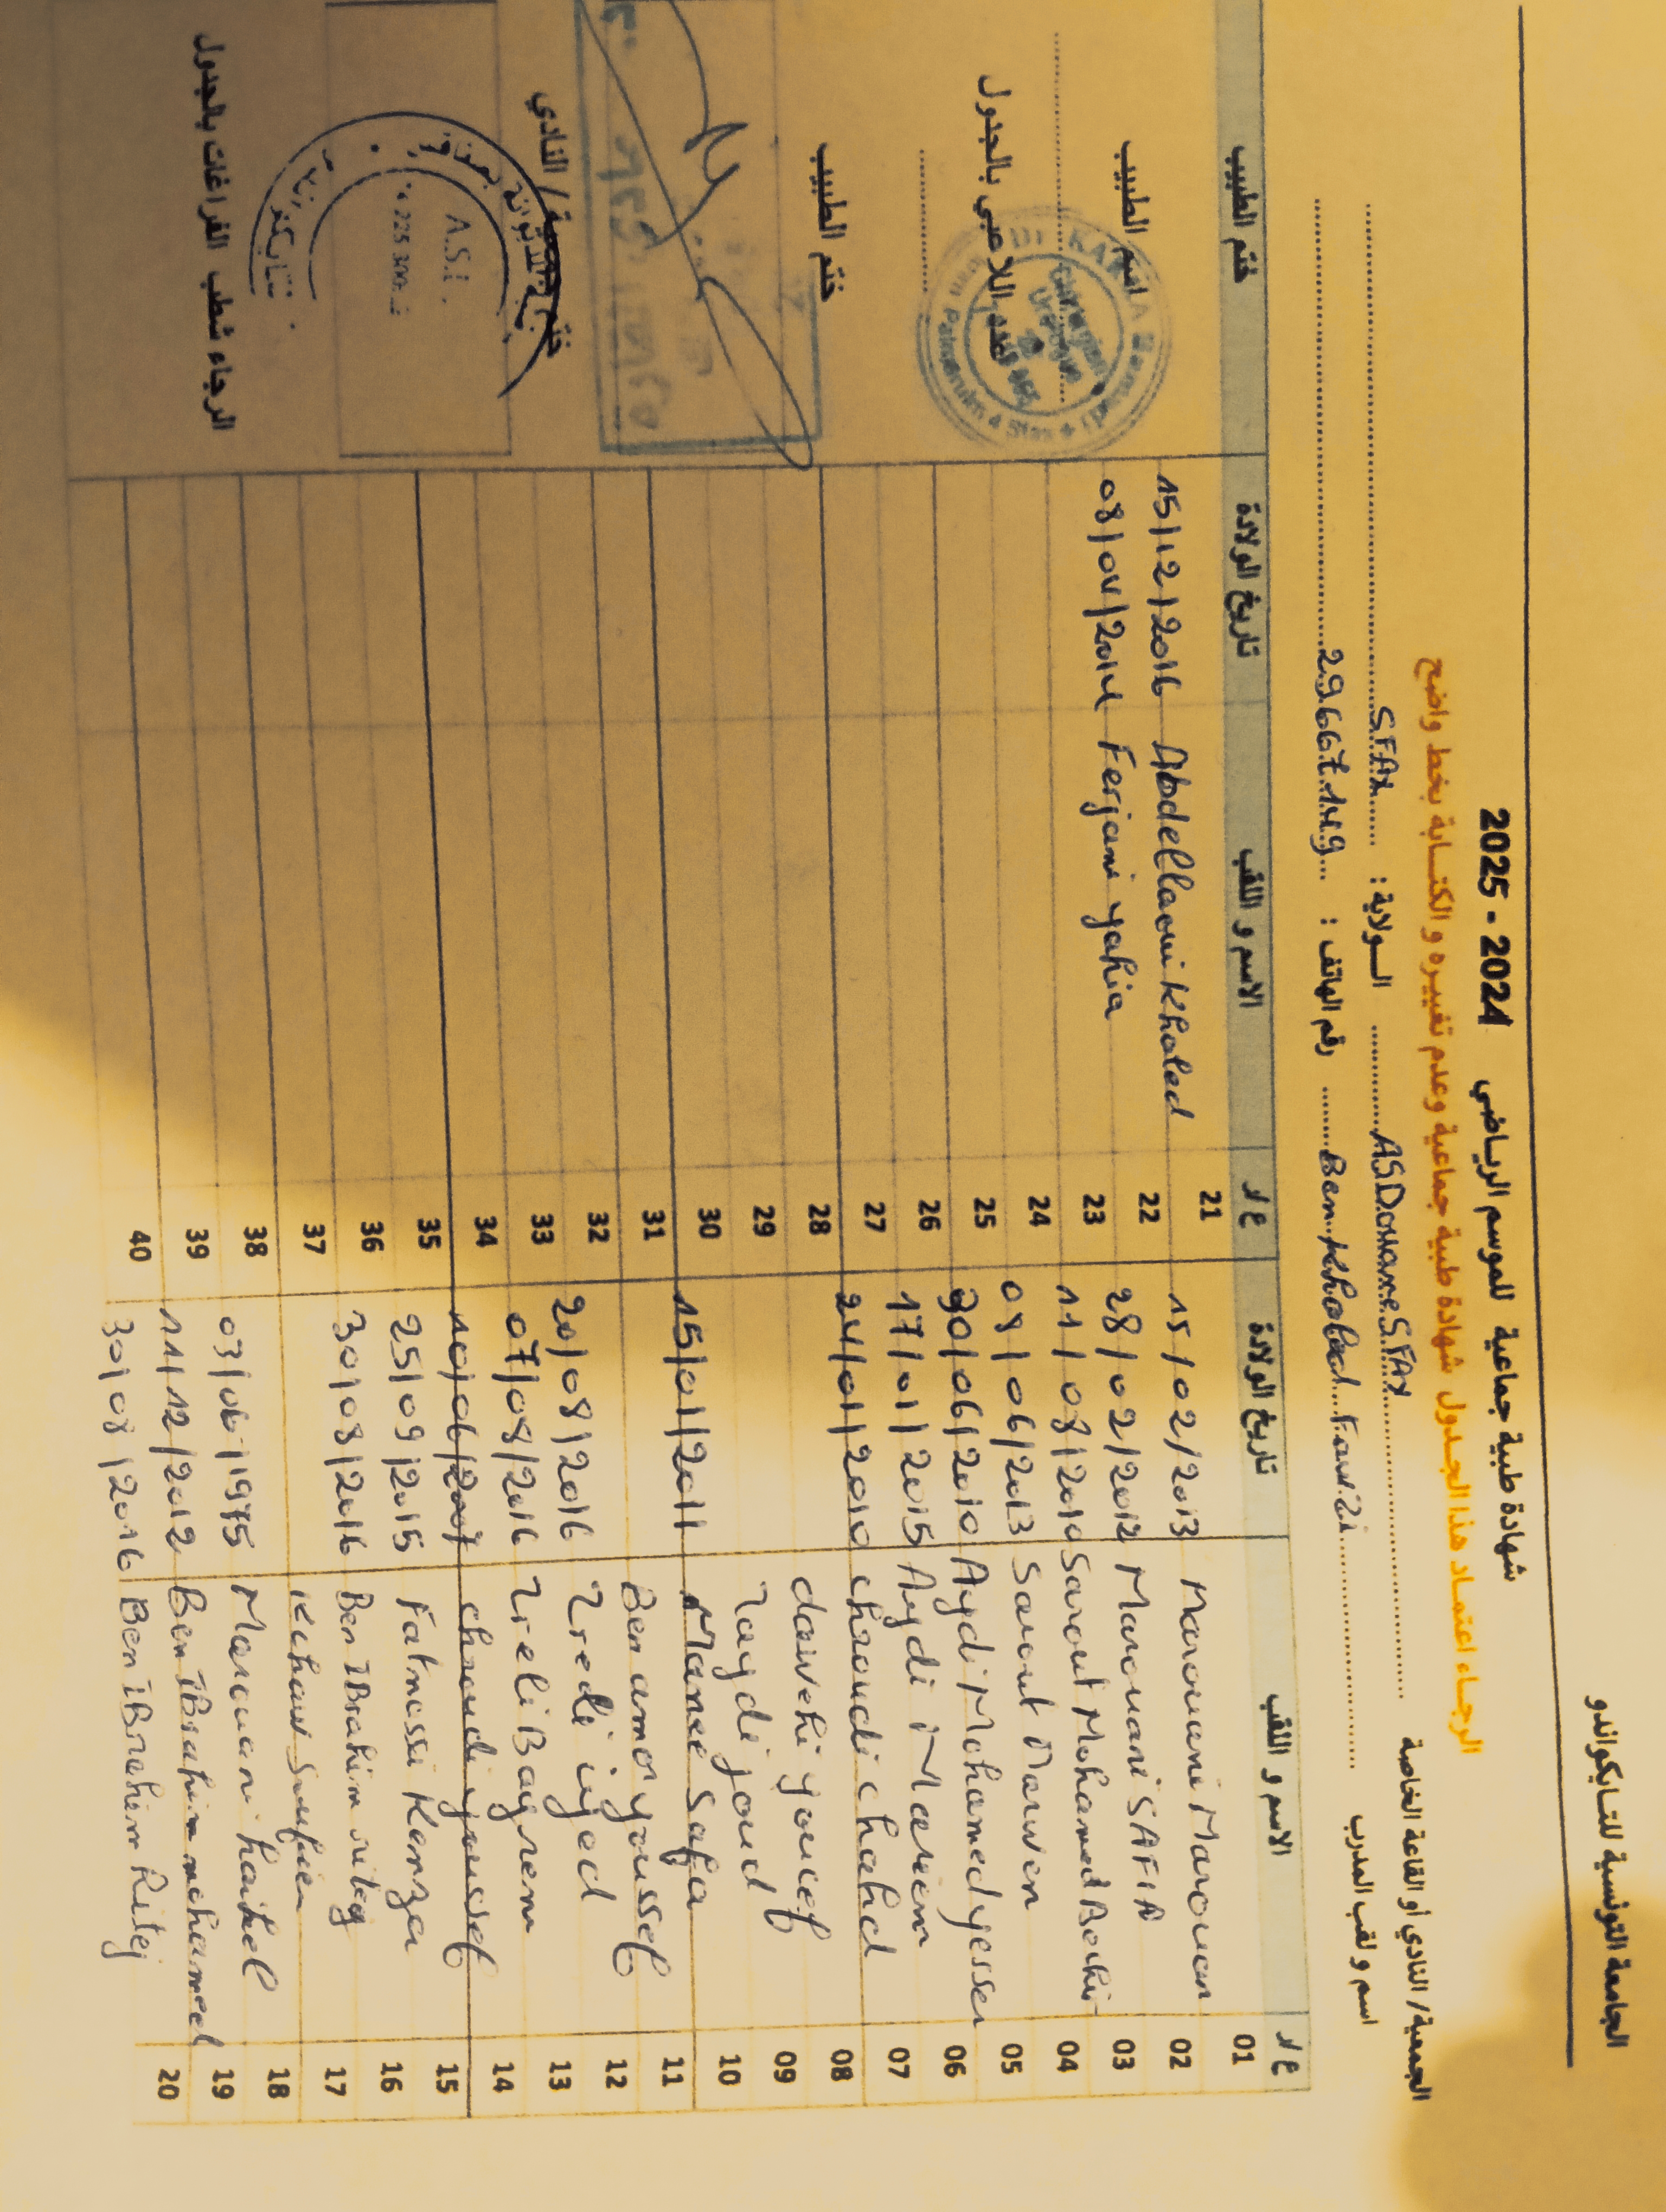 الجامعة التونسية للتايكواندو
شهادة طبية جماعية للموسم الرياضي 2024 - 2025
الرجاء اعتماد هذا الجدول شهادة طبية جماعية وعدم تغييره و الكتابة بخط واضح
الجمعية / النادي أو القاعة الخاصة ASDouane SFAX الولاية : SFAX
اسم و لقب المدرب Ben Khaled Fawzi رقم الهاتف : 29667149
ع/د الاسم و اللقب تاريخ الولادة ع/د الاسم و اللقب تاريخ الولادة ختم الطبيب
01 Marouani Marouan 15/02/2013 21 Abdellaoui Khaled 15/12/2016
02 Marouani SAFIA 28/02/2012 22 Ferjani yahia 08/04/2014
03 Sarout Mohamed Bechir 11/08/2010 23
04 Sarout Marwen 08/06/2013 24
05 Aydi Mohamed yesser 30/06/2010 25
06 Aydi Mariem 17/01/2015 26
07 chaoudi chahd 24/01/2010 27
08 daivehi youcef 28
09 Zaydi joud 29
10 Manee Safa 15/01/2011 30
11 Ben amor youssef 31
12 Zredi iyed 20/08/2016 32
13 Zreli Bayrem 07/08/2016 33
14 chaoudi youssef 10/06/2007 34
15 Fatnassi Kenza 25/09/2015 35
16 Ben IBrahim 30/08/2016 36
17 37
18 Marouani haikel 03/06/1975 38
19 Ben IBrahim mohamed 11/12/2012 39
20 Ben IBrahim Ritej 30/08/2016 40
اسم الطبيب
عدد اللاعبي بالجدول
ختم الطبيب
ختم الجمعية / النادي
A.S.
الرجاء شطب الفراغات بالجدول